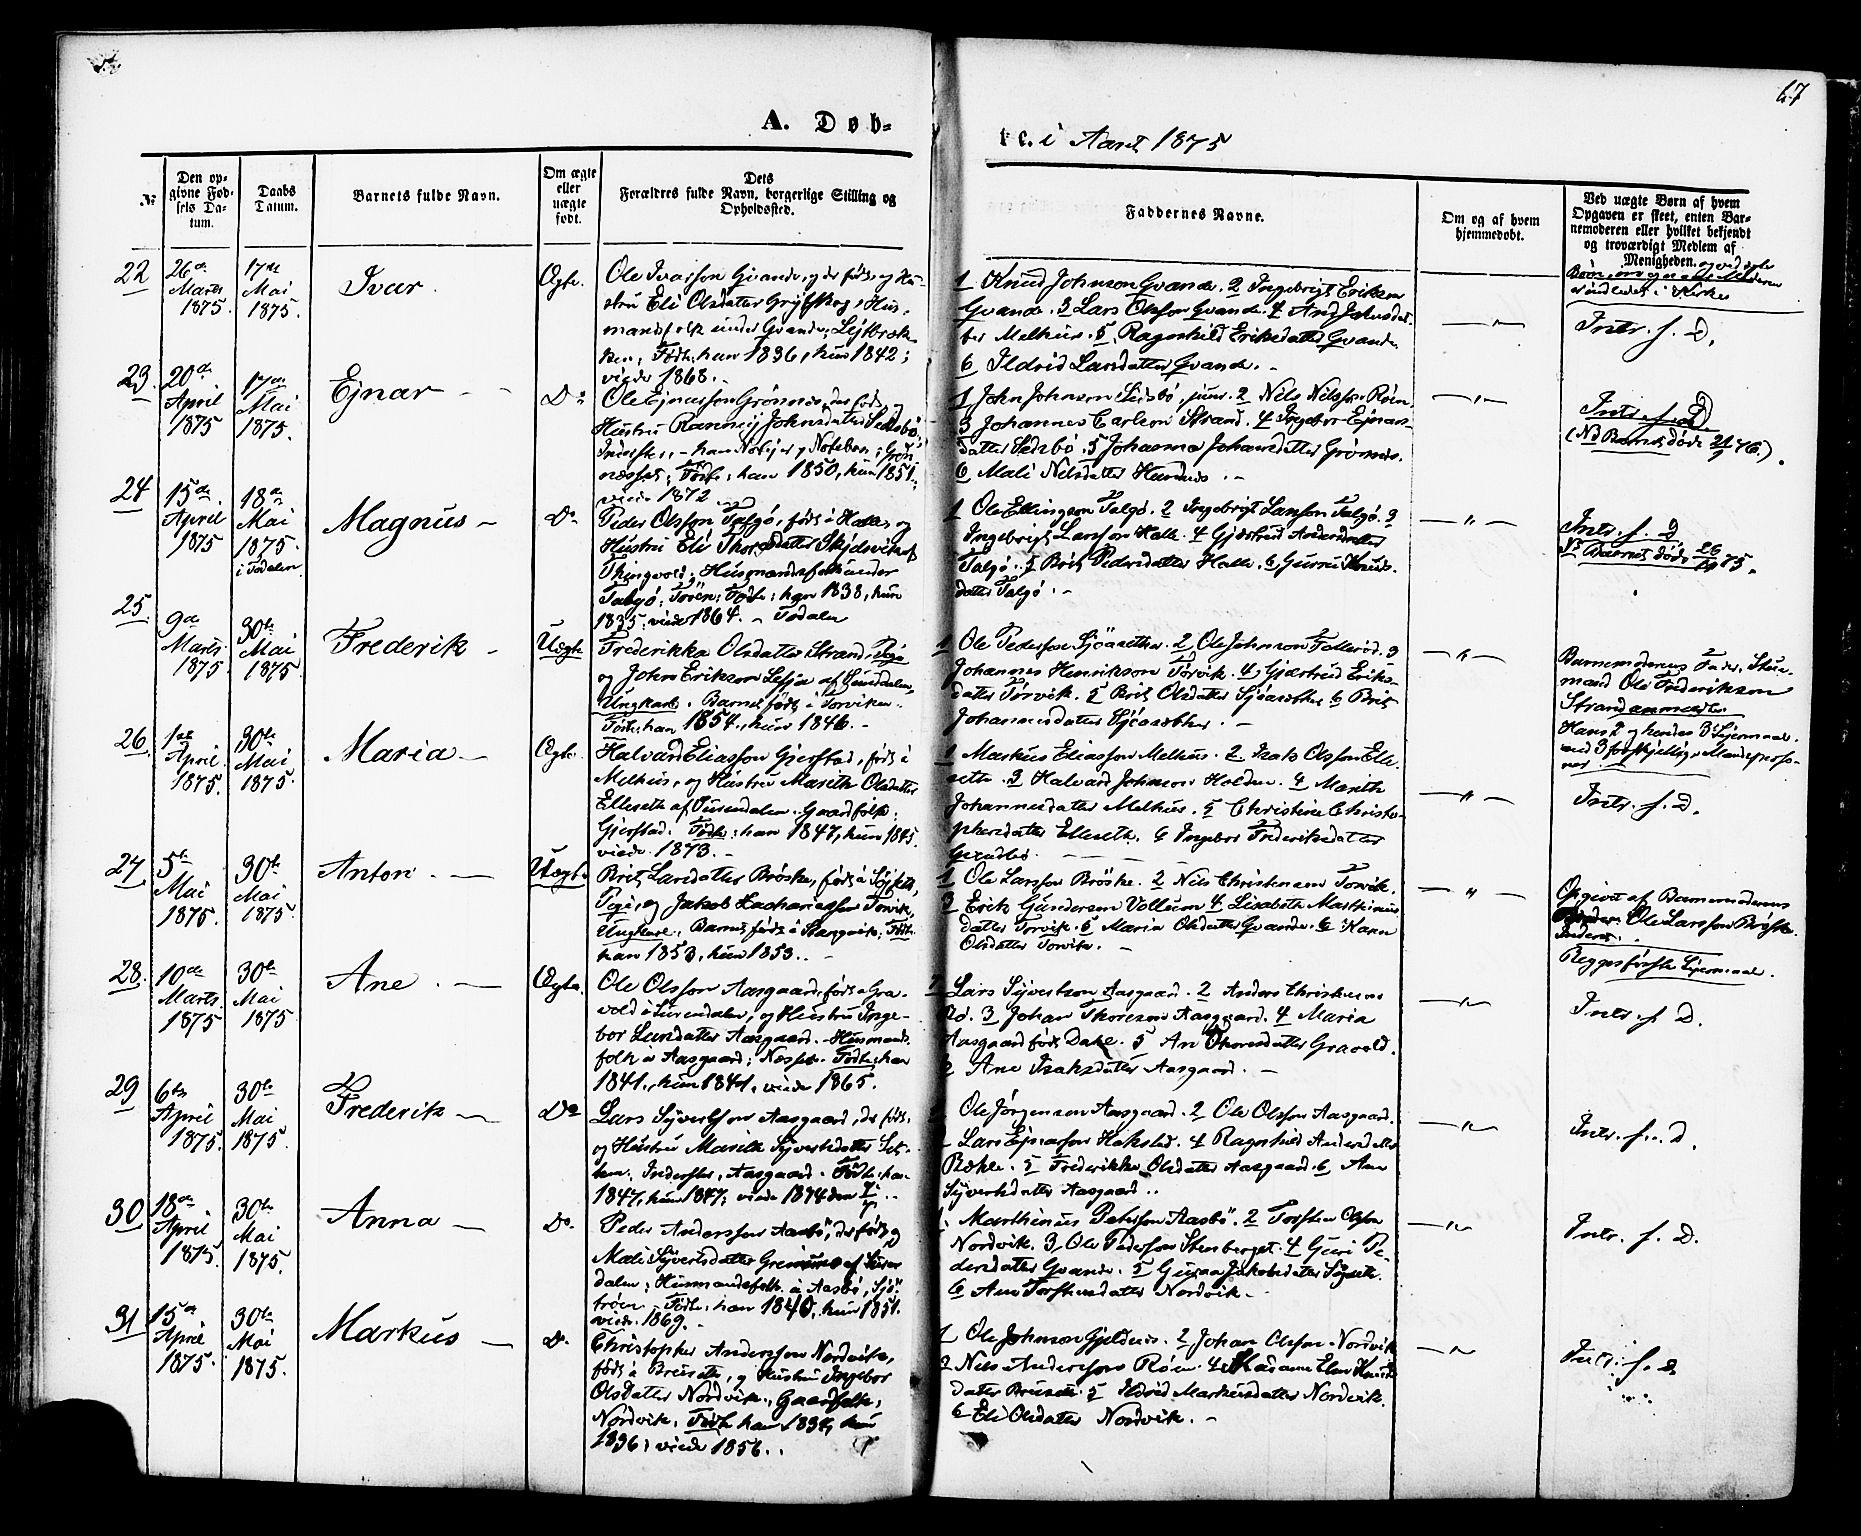 67
A. Døb-
te. i Aaret 1875
No
Den op-
givne Fød-
sels Da-
tum.
Daabs
Datum.
Barnets fulde Navn.
Om ægte
eller
uægte
født.
Dets
Forældres fulde Navn, borgerlige Stilling og
Opholdssted.
Faddernes Navne.
Om og af hvem
hjemmedøbt.
Ved uægte Børn af hvem
Opgaven er skeet, enten Bar-
nemoderen eller hvilket bekjendt
og troværdigt Medlem af
Menigheden.
22
26de
Marts
1875.
17de
Mai
1875.
Ivar.
Ægte.
Ole Ivarsson Gvande, der født og Hu-
stru Eli Olsdatter Grytskog, Hus-
mandsfolk under Gvande,
Født: han 1836, hun 1842;
viede 1868.
1 Knud Johnson Gvande. 2 Ingebrigt Erikson
Gvande. 3 Lars Olsson Gvande. 4
Melhus. 5 Ragnhild Eriksdatter Gvande
6 Ildrid Larsdatter Gvande.
— " —
Intr. f. D.
23.
20de
April
1875
17de
Mai
1875.
Ejnar
Do
Ole Ejnarsson Grønnes, der født, og
Hustru Johnsdatter Settsbø
Inderster,
Født: han 1850, hun 1851;
viede 1872.
1 John Johnson Settsbø, jun. 2 Nils Nilsson Røen.
3 Johannes Carlson Strand. 4 Ingebor Ejnars-
datter Settsbø. 5 Johanna Johansdatter Grønnes.
6 Mali Nilsdatter Husnes.
— " —
Intr. f. D
(NB Barnet døde 21/9 76.).
24
15de
April
1875
18de
Mai
1875.
i Todalen
Magnus
Do
Peder Olsson Talgø, født i Halle og
Hustru Eli Thoresdatter
Thingvold, Husmandsfolk under
Talgø; Født: han 1838, hun
1835; viede 1864. Todalen
1 Ole Ellingson Talgø. 2 Ingebrigt Larsson Talgø. 3
Ingebrigt Larsson Halle. 4 Gjertrud Andersdatter
Talgø. 5 Brit Pedersdatter Halle. 6 Guru Knuds-
datter Talgø.
— " —
Intr. f. D.
Barnet døde 26/ 75.
25.
9de
Marts
1875
30te
Mai
1875.
Frederik
Uægte
Frederikka Olsdatter Strand, Pige
og John Erikson Lesja af Sunddalen,
Ungkarl. Barnet født i Torviken.
Født: han 1854, hun 1846.
1 Ole Pedersson Sjöasæther. 2 Ole Johnson Fallerød. 3
Johannes Henrikson Torvik. 4 Gjertrud Eriks-
datter Torvik. 5 Brit Olsdatter Sjöasæther. 6 Brit
Johannesdatter Sjöasæther.
— " —
Barnemoderens Fader,
mand Ole Frederikson
Strandanmelder
Hans 2 og hendes 3 Lejermaal
med 3 forskjellige Mandsperso-
ner.
26
1ste
April
1875.
30te
Mai
1875.
Maria
Ægte.
Halvard Eliasson Gjerstad, født i
Melhus, og Hustru Marith Olsdatter
Elleseth af Surendalen. Gaardfolk:
Gjerstad. Født: han 1847, hun 1845.
viede 1873.
1 Markus Eliasson Melhus. 2 Isak Olsson Elle-
seth. 3 Halvard Johnson Holden. 4 Marith
Johannesdatter Melhus. 5 Christine Christo-
phersdatter Elleseth. 6 Ingebor Frederiksdatter
— " —
Intr. f. D.
27
5te
Mai
1875.
30te
Mai
1875.
Anton.
Uægte
Brit Larsdatter Brøske, født i
Pige, og Jakob Zachariasson Torvik,
Ungkarl. Barnet født i Stangvik; Født:
han 1853, hun 1853.
1 Ole Larsson Brøske. 2 Nils Christensen Torvik.
3 Erik Gunderson Vollum 4 Lisabeth Marthinus
datter Torvik. 5 Maria Olsdatter Gvande. 6 Karen
Olsdatter Torvik.
— " —
Opgivet af Barnemoderens
Ole Larsson Brøske.
Begges første Lejermaal.
28.
10de
Marts
1875
30te
Mai
1875
Ane.
Ægte.
Ole Olsson Aasgaard, født i Gra-
vold i Surendalen, og Hustru Inge-
bor Larsdatter Aasgaard. Husmands-
folk u. Aasgaard; Født: han
1841, hun 1841, viede 1865.
1 Lars Sjvertson Aasgaard. 2 Anders Christensen
Rø. 3 Johan Thoreson Aasgaard. 4 Maria
Aasgaard født Dahl. 5 An Thoresdatter Gravold.
6 Ane Isaksdatter Aasgaard.
— " —
Intr. f. D.
29
6te
April
1875.
30te
Mai
1875.
Frederik
Do
Lars Sjvertson Aasgaard, der født,
og Hustru Marith Sjvertsdatter
Inderster, Aasgaard. Født: han
1847, hun 1847; viede 1874
Ole Jørgenson Aasgaard. 2 Ole Olsson Aasgaard.
Lars Ejnarson Hakstad. 4 Ragnhild Andersdatter
Bøkle. 5 Frederikke Olsdatter Aasgaard. 6 Ane
Sjvertsdatter Aasgaard.
— " —
Intr. f. D.
30
18de
April
1875.
30te
Mai
1875.
Anna
Do.
Peder Andersson Aasbö, der født og
Mali Sjvertsdatter Grimsmo af Suren-
dalen; Husmandsfolk u. Aasbö,
Født: han 1840, hun 1851.
viede 1869.
Marthinus Peterson Aasbö. 2 Torsten Olson
Nordvik. 3 Ole Pederson Stenberget. 4 Guri Pe-
dersdatter Gvande. 5 Gunna Jakobsdatter
6 Ane Torstensdatter Nordvik.
— " —
Intr. f. D.
31
15de
April
1875.
30te
Mai
1875.
Markus
Do.
Christopher Andersson Nordvik,
født i Bruset, og Hustru Ingebor
Olsdatter Nordvik. Gaardfolk,
Nordvik. Født: han 1834, hun
1836; viede 1856.
1 Ole Johnson Gjeldnes. 2 Johan Olsson Nordvik
3 Nils Anderson Røen. 4 Madame Elen Knuds-
datter Bruset. 5 Ildrid Markusdatter Nordvik.
6 Eli Olsdatter Nordvik.
— " —
Intr. f. D.